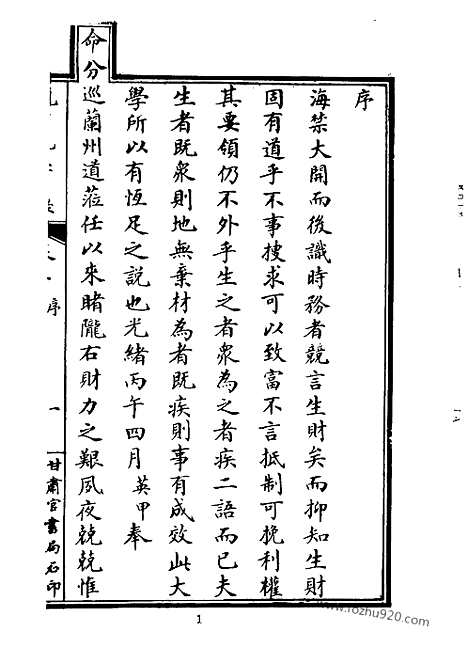 序
海禁大開而後識時務者競言生財矣而抑知生財
固有道乎不事搜求可以致富不言抵制可挽利權
其要領仍不外乎生之者衆為之者疾二語而已夫
生者既衆則地無棄材為者既疾則事有成效此大
學所以有恆足之說也光緒丙午四月 英甲奉
命分巡蘭州道蒞任以來睹隴右財力之艱夙夜兢兢惟
序
一
甘肅官書局石印
1
www.rozhu920.com